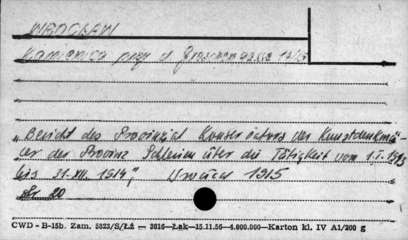 WROCŁAW
Kamienica przy ul
"Bericht des Provinzial Konservators der Kunstdenkmä-
ler der Provinz Schlesien über die Tätigkeit vom 1.I.1913
bis 31.XII.1914", Wrocław 1915
20
CWD - B-15b. Zam. 5823/S/Łź — 3016—Łąk—15.11.56—4.000.000—Karton kl. IV A1/200 g